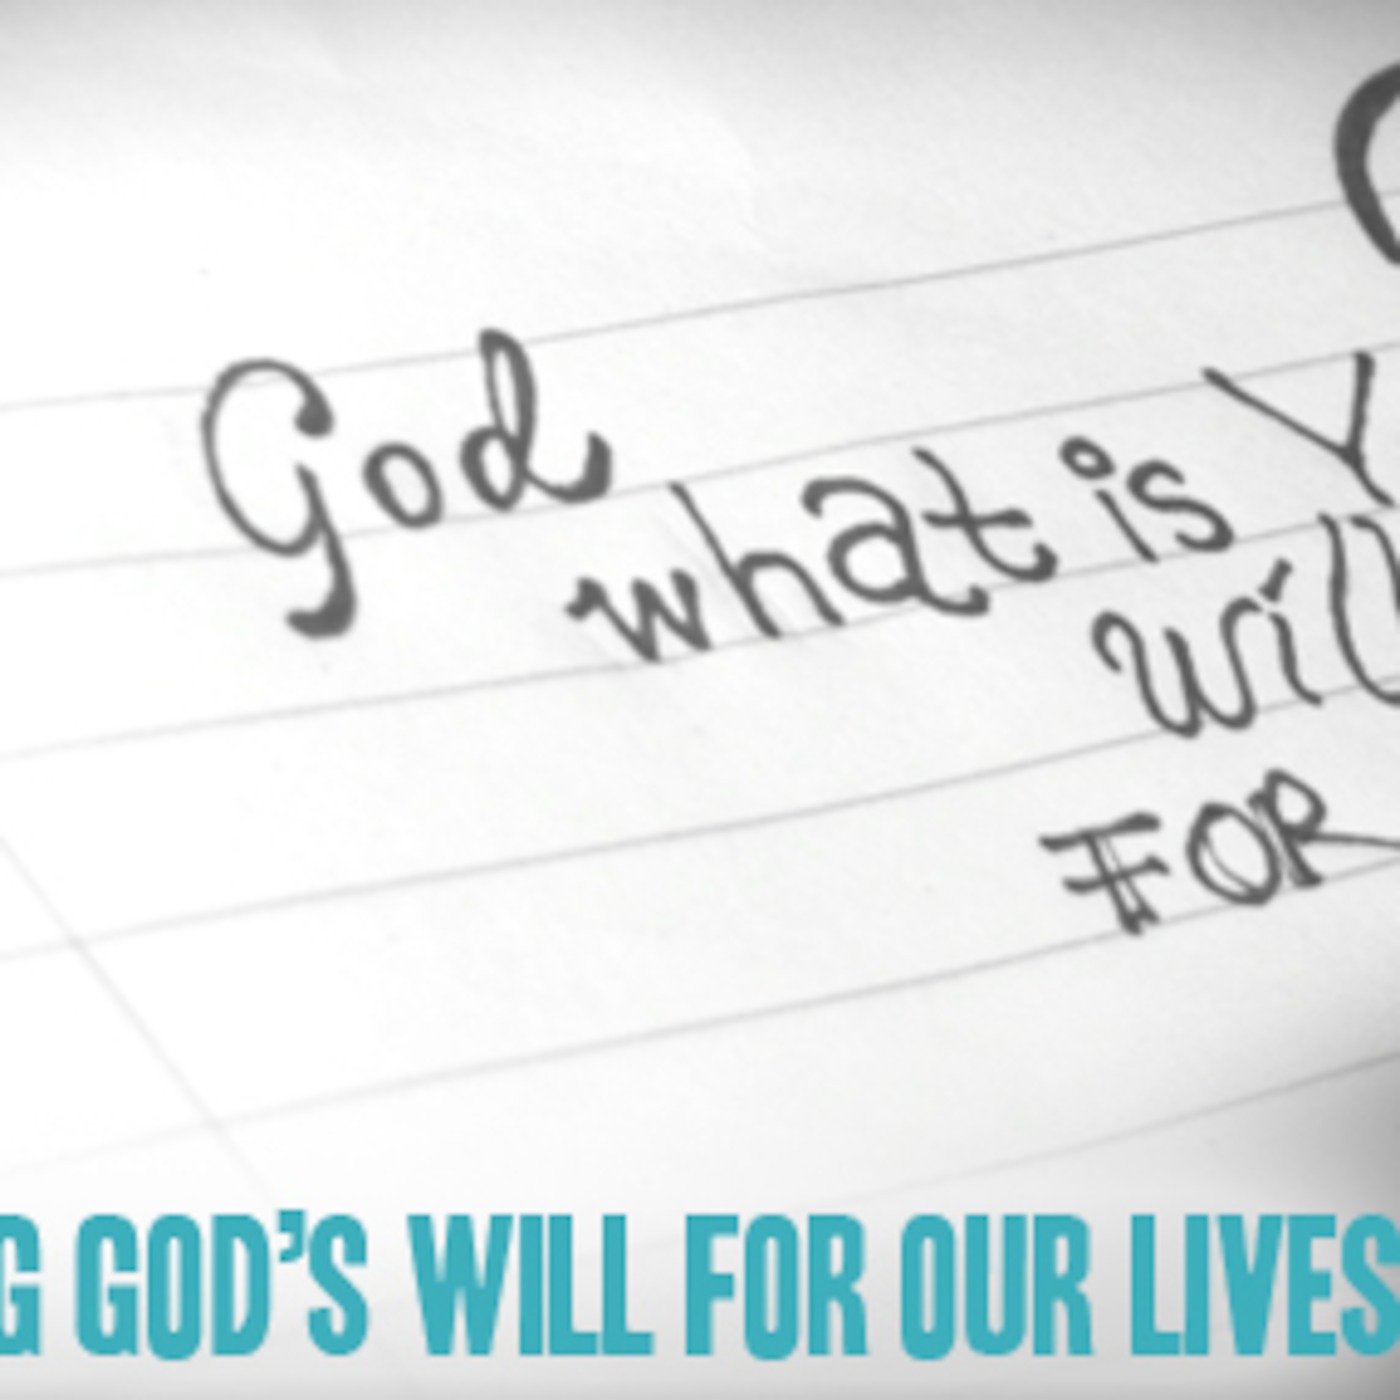 God
what is Y
will
FOR
G GOD'S WILL FOR OUR LIVES